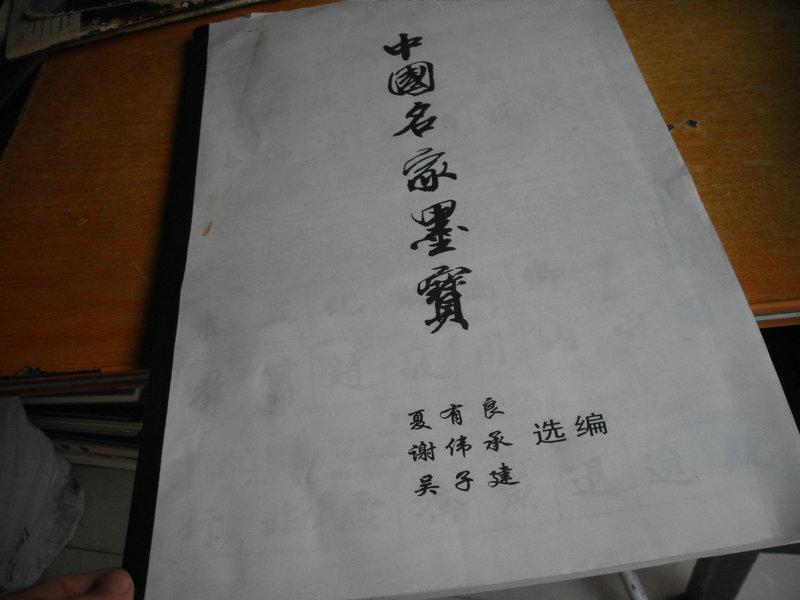 中國名家墨寶
夏有良
谢伟承
吴子建
选编